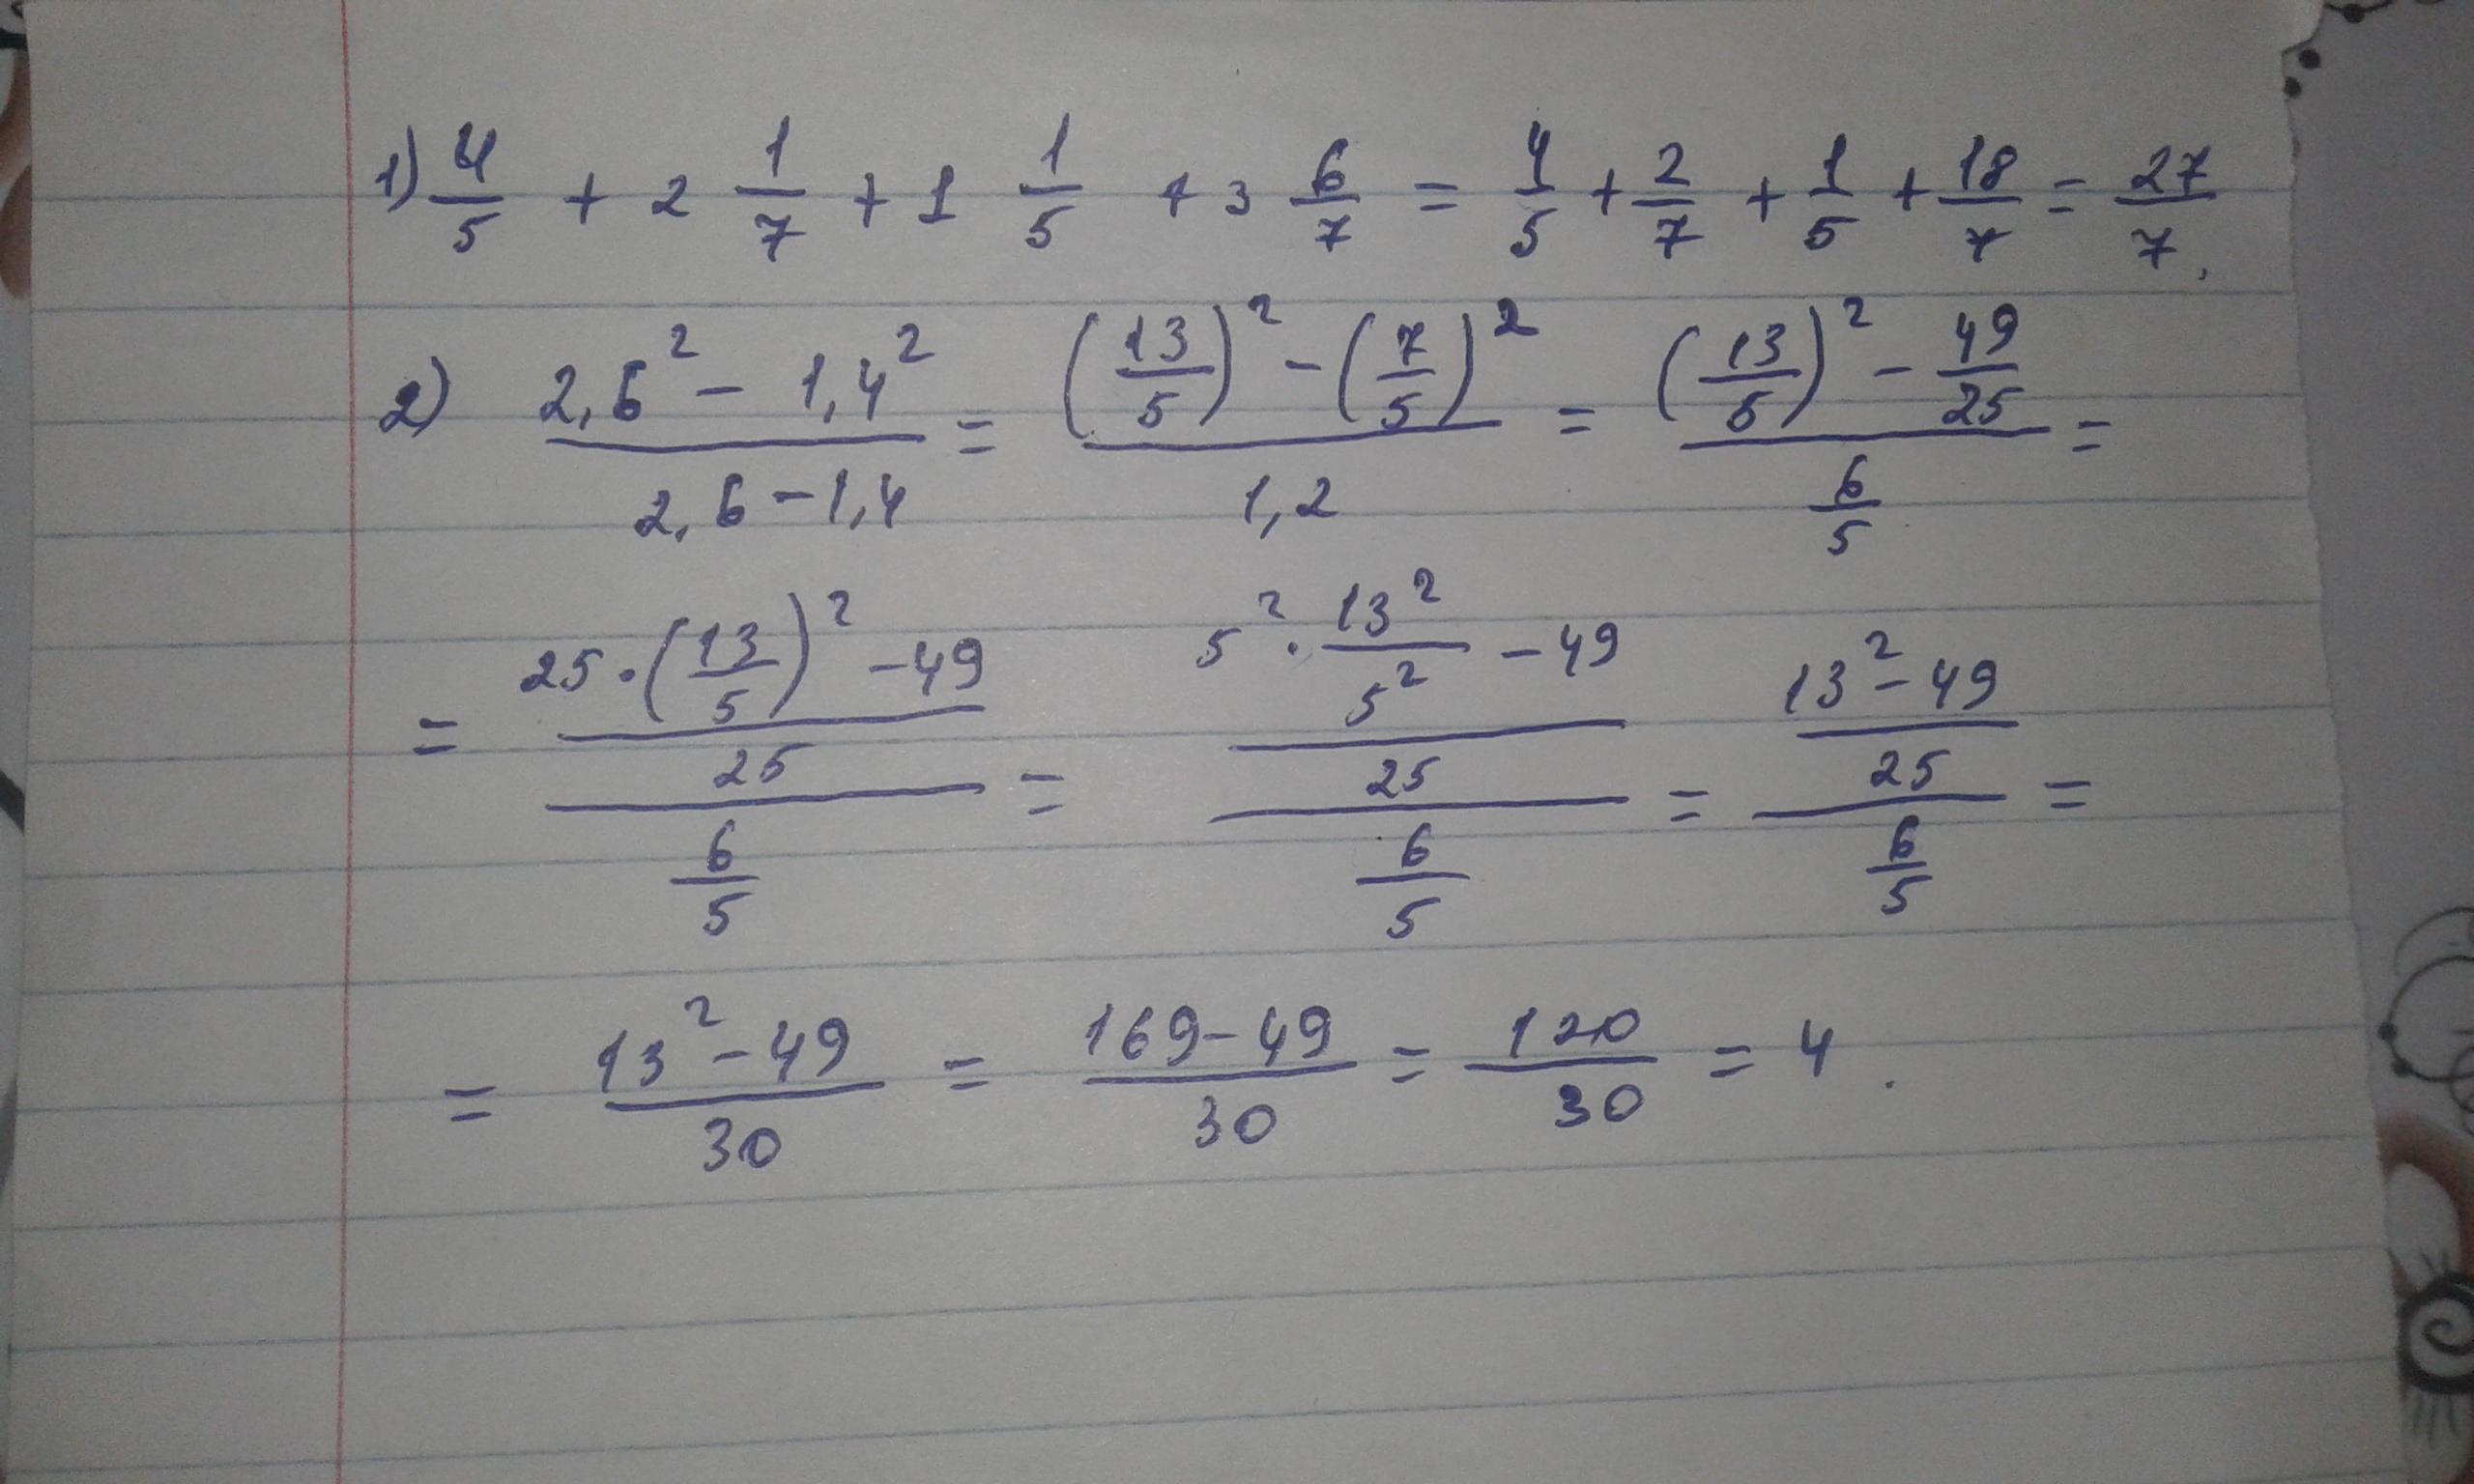 1) 4/5 + 2 1/7 + 1 1/5 + 3 6/7 = 4/5 + 2/7 + 1/5 + 18/7 = 27/7.
2) (2,6² - 1,4²)/(2,6 - 1,4) = ((13/5)² - (7/5)²)/(1,2) = ((13/5)² - 49/25)/(6/5) =
= ((25·(13/5)² - 49)/25)/(6/5) = ((5²·13²/5² - 49)/25)/(6/5) = ((13² - 49)/25)/(6/5) =
= (13² - 49)/30 = (169 - 49)/30 = 120/30 = 4.